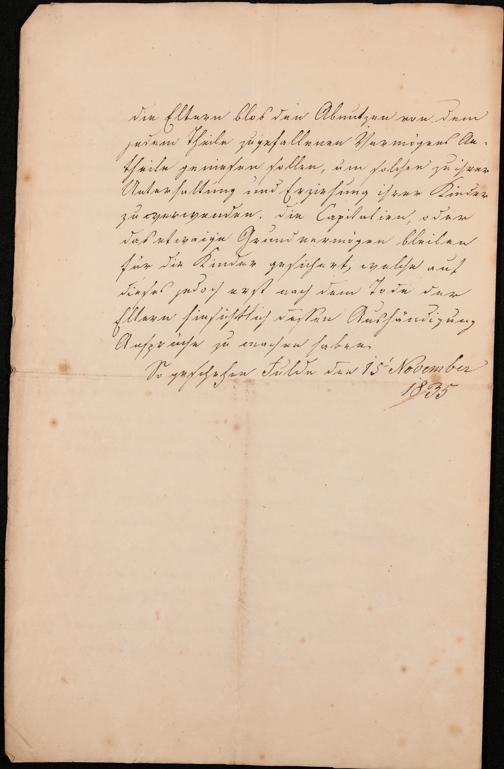 die Eltern blos den Abnutzen von dem
jedem Theile zugefallenen Vermögens An-
theile geniesen sollen, um solchen zu ihrer
Unterhaltung und Erziehung ihrer Kinder
zu verwenden. die Capitalien, oder
das etwaige Grundvermögen bleiben
für die Kinder gesichert, welche auf
dieses jedoch erst nach dem Tode der
Eltern hinsichtlich dessen Aushändigung
Ansprüche zu machen haben.
So geschehen Fulda den 15 November
1835